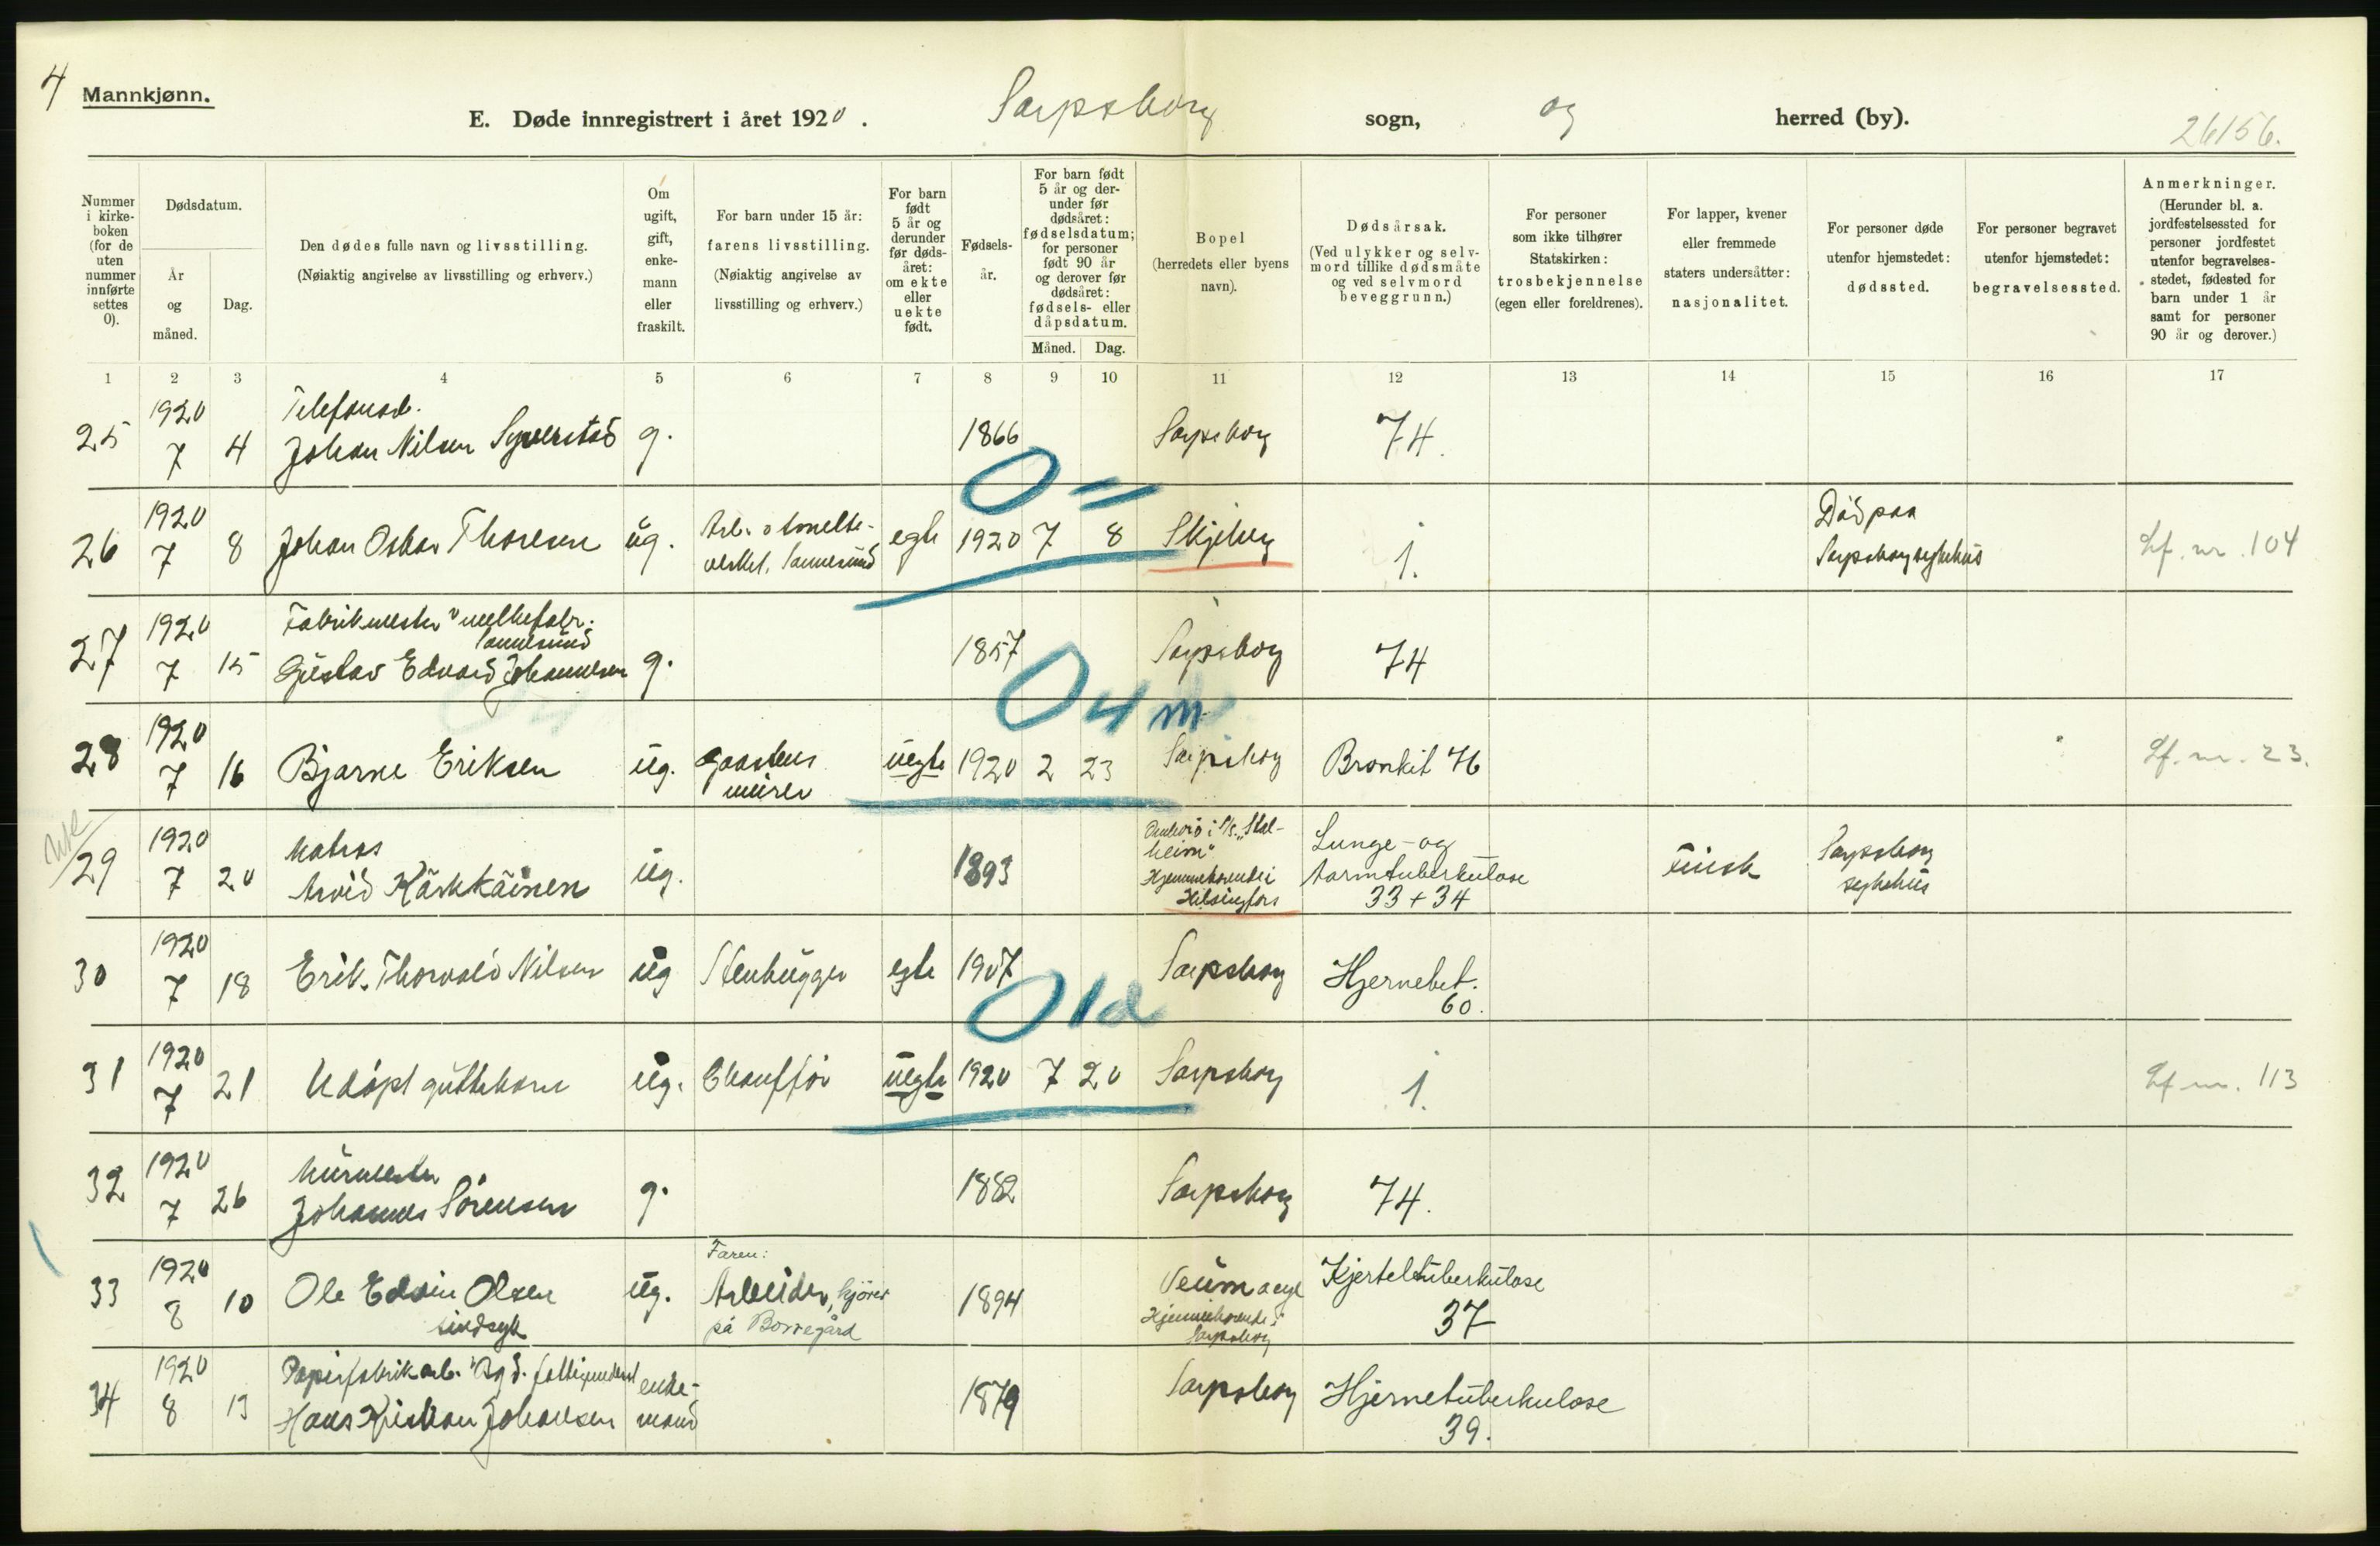 4
Mannkjønn.
E. Døde innregistrert i året 1920.
Sarpsborg
sogn,
og
herred (by).
26156.
Nummer i kirke-boken (for de uten nummer innførte settes 0).
Dødsdatum.
År og måned.
Dag.
Den dødes fulle navn og livsstilling.
(Nøiaktig angivelse av livsstilling og erhverv.)
Om ugift, gift, enke-mann eller fraskilt.
For barn under 15 år:
farens livsstilling.
(Nøiaktig angivelse av
livsstilling og erhverv.)
For barn født 5 år og derunder før døds-året: om ekte eller uekte født.
Fødsels-år.
For barn født 5 år og der-under før dødsåret: fødselsdatum; for personer født 90 år og derover før dødsåret: fødsels- eller dåpsdatum.
Måned.
Dag.
Bopel
(herredets eller byens
navn).
Dødsårsak.
(Ved ulykker og selv-
mord tillike dødsmåte
og ved selvmord
beveggrunn.)
For personer
som ikke tilhører
Statskirken:
trosbekjennelse
(egen eller foreldrenes).
For lapper, kvener
eller fremmede
staters undersåtter:
nasjonalitet.
For personer døde
utenfor hjemstedet:
dødssted.
For personer begravet
utenfor hjemstedet:
begravelsessted.
Anmerkninger.
(Herunder bl. a.
jordfestelsessted for
personer jordfestet
utenfor begravelses-
stedet, fødested for
barn under 1 år
samt for personer
90 år og derover.)
1 2 3 4 5 6 7 8 9 10 11 12 13 14 15 16 17
25 1920 7 4
Telefonarb.
Johan Nilsen Syverstad g. 1866 Sarpsborg 74.
0
26 1920 7 8 Johan Oskar Thoresen ug. Arb. v smelte-
verket, Sannesund egte 1920 7 8 Skjeberg 1.
Död paa
Sarpsborg sykehus
Lf. nr. 104
27 1920 7 15
Fabrikmester v melkefabr.
Sannesund
Gustav Edvard Johannesen g. 1857 Sarpsborg 74
0 4 m
28 1920 7 16 Bjarne Eriksen ug.
murer
uegte 1920 2 23 Sarpsborg Bronkit 46
Lf. nr. 23.
29 1920 7 20
Matros
Arvid Kärkkäinen ug. 1893
Ombord i S/S. "Stal-
heim"
Hjemmehørende i
Helsingfors
Lunge- og
tarmtuberkulose
33 + 34
Finsk
Sarpsborg
sykehus
30 1920 7 18 Erik Thorvald Nilsen ug Stenhugger egte 1907 Sarpsborg Hjernebet.
60.
0 1 d
31 1920 7 21 Udöpt guttebarn ug. Chauffør uegte 1920 7 20 Sarpsborg 1.
Lf. nr. 113
32 1920 7 26
Murmester
Johannes Sörensen g. 1882 Sarpsborg 74.
33 1920 8 10 Ole Edvin Olsen
sindsyk
ug.
Faren:
Arbeider, kjører
på Borregård
1894
Veum asyl
Hjemmehørende i
Sarpsborg
Kjerteltuberkulose
37
34 1920 8 13
Papirfabrikarb.
Hans Kristian Johansen
enke-
mand
1879 Sarpsborg Hjernetuberkulose
39.